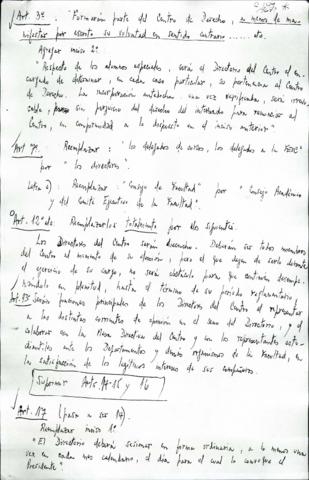 Art. 3º. "Formarán parte del Centro de Derecho, a menos de ma-
nifestar por escrito su voluntad en sentido contrario ...... etc.
Agregar inciso 2º.
"Respecto de los alumnos especiales, será el Directorio del Centro el en-
cargado de determinar, en cada caso particular, su pertenencia al Centro
de Derecho. La incorporación una vez será
sin perjuicio del derecho del interesado para renunciar al
Centro, en conformidad a lo dispuesto en el inciso anterior"
Art 7º. Reemplazar: "los delegados de cursos, los delegados a la FECH"
por "los directores".
Letra Reemplazar "Consejo de Facultad" por "Consejo Académico
y del Comité Ejecutivo de la Facultad".
Art. 12º Reemplazarlos totalmente por los siguientes:
Los Directores del Centro serán Deberán ser todos miembros
del Centro al momento de su elección, pero el que dejen de serlo durante
el ejercicio de su cargo, no será obstáculo para que continúen desempe-
ñándolo en plenitud, hasta el término de su período reglamentario
Art. 13 Serán funciones principales de los Directores del Centro el representar
a las distintas corrientes de opinión en el seno del Directorio, y el
colaborar con la Mesa Directiva del Centro y con los representantes estu-
diantiles ante los Departamentos y demás organismos de la Facultad, en
la satisfacción de los legítimos intereses de sus compañeros.
Suprimir Arts. 14-15 y 16
Art. 17 (pasa a ser 14).
Reemplazar inciso 1º
"El Directorio deberá sesionar en forma ordinaria, a lo menos una
vez en cada mes calendario, el día para el cual lo convoque el
Presidente".